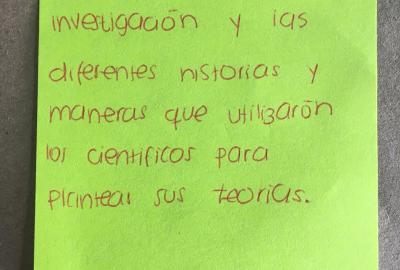 investigación y las
diferentes historias y
maneras que utilizarón
los científicos para
plantear sus teorias.